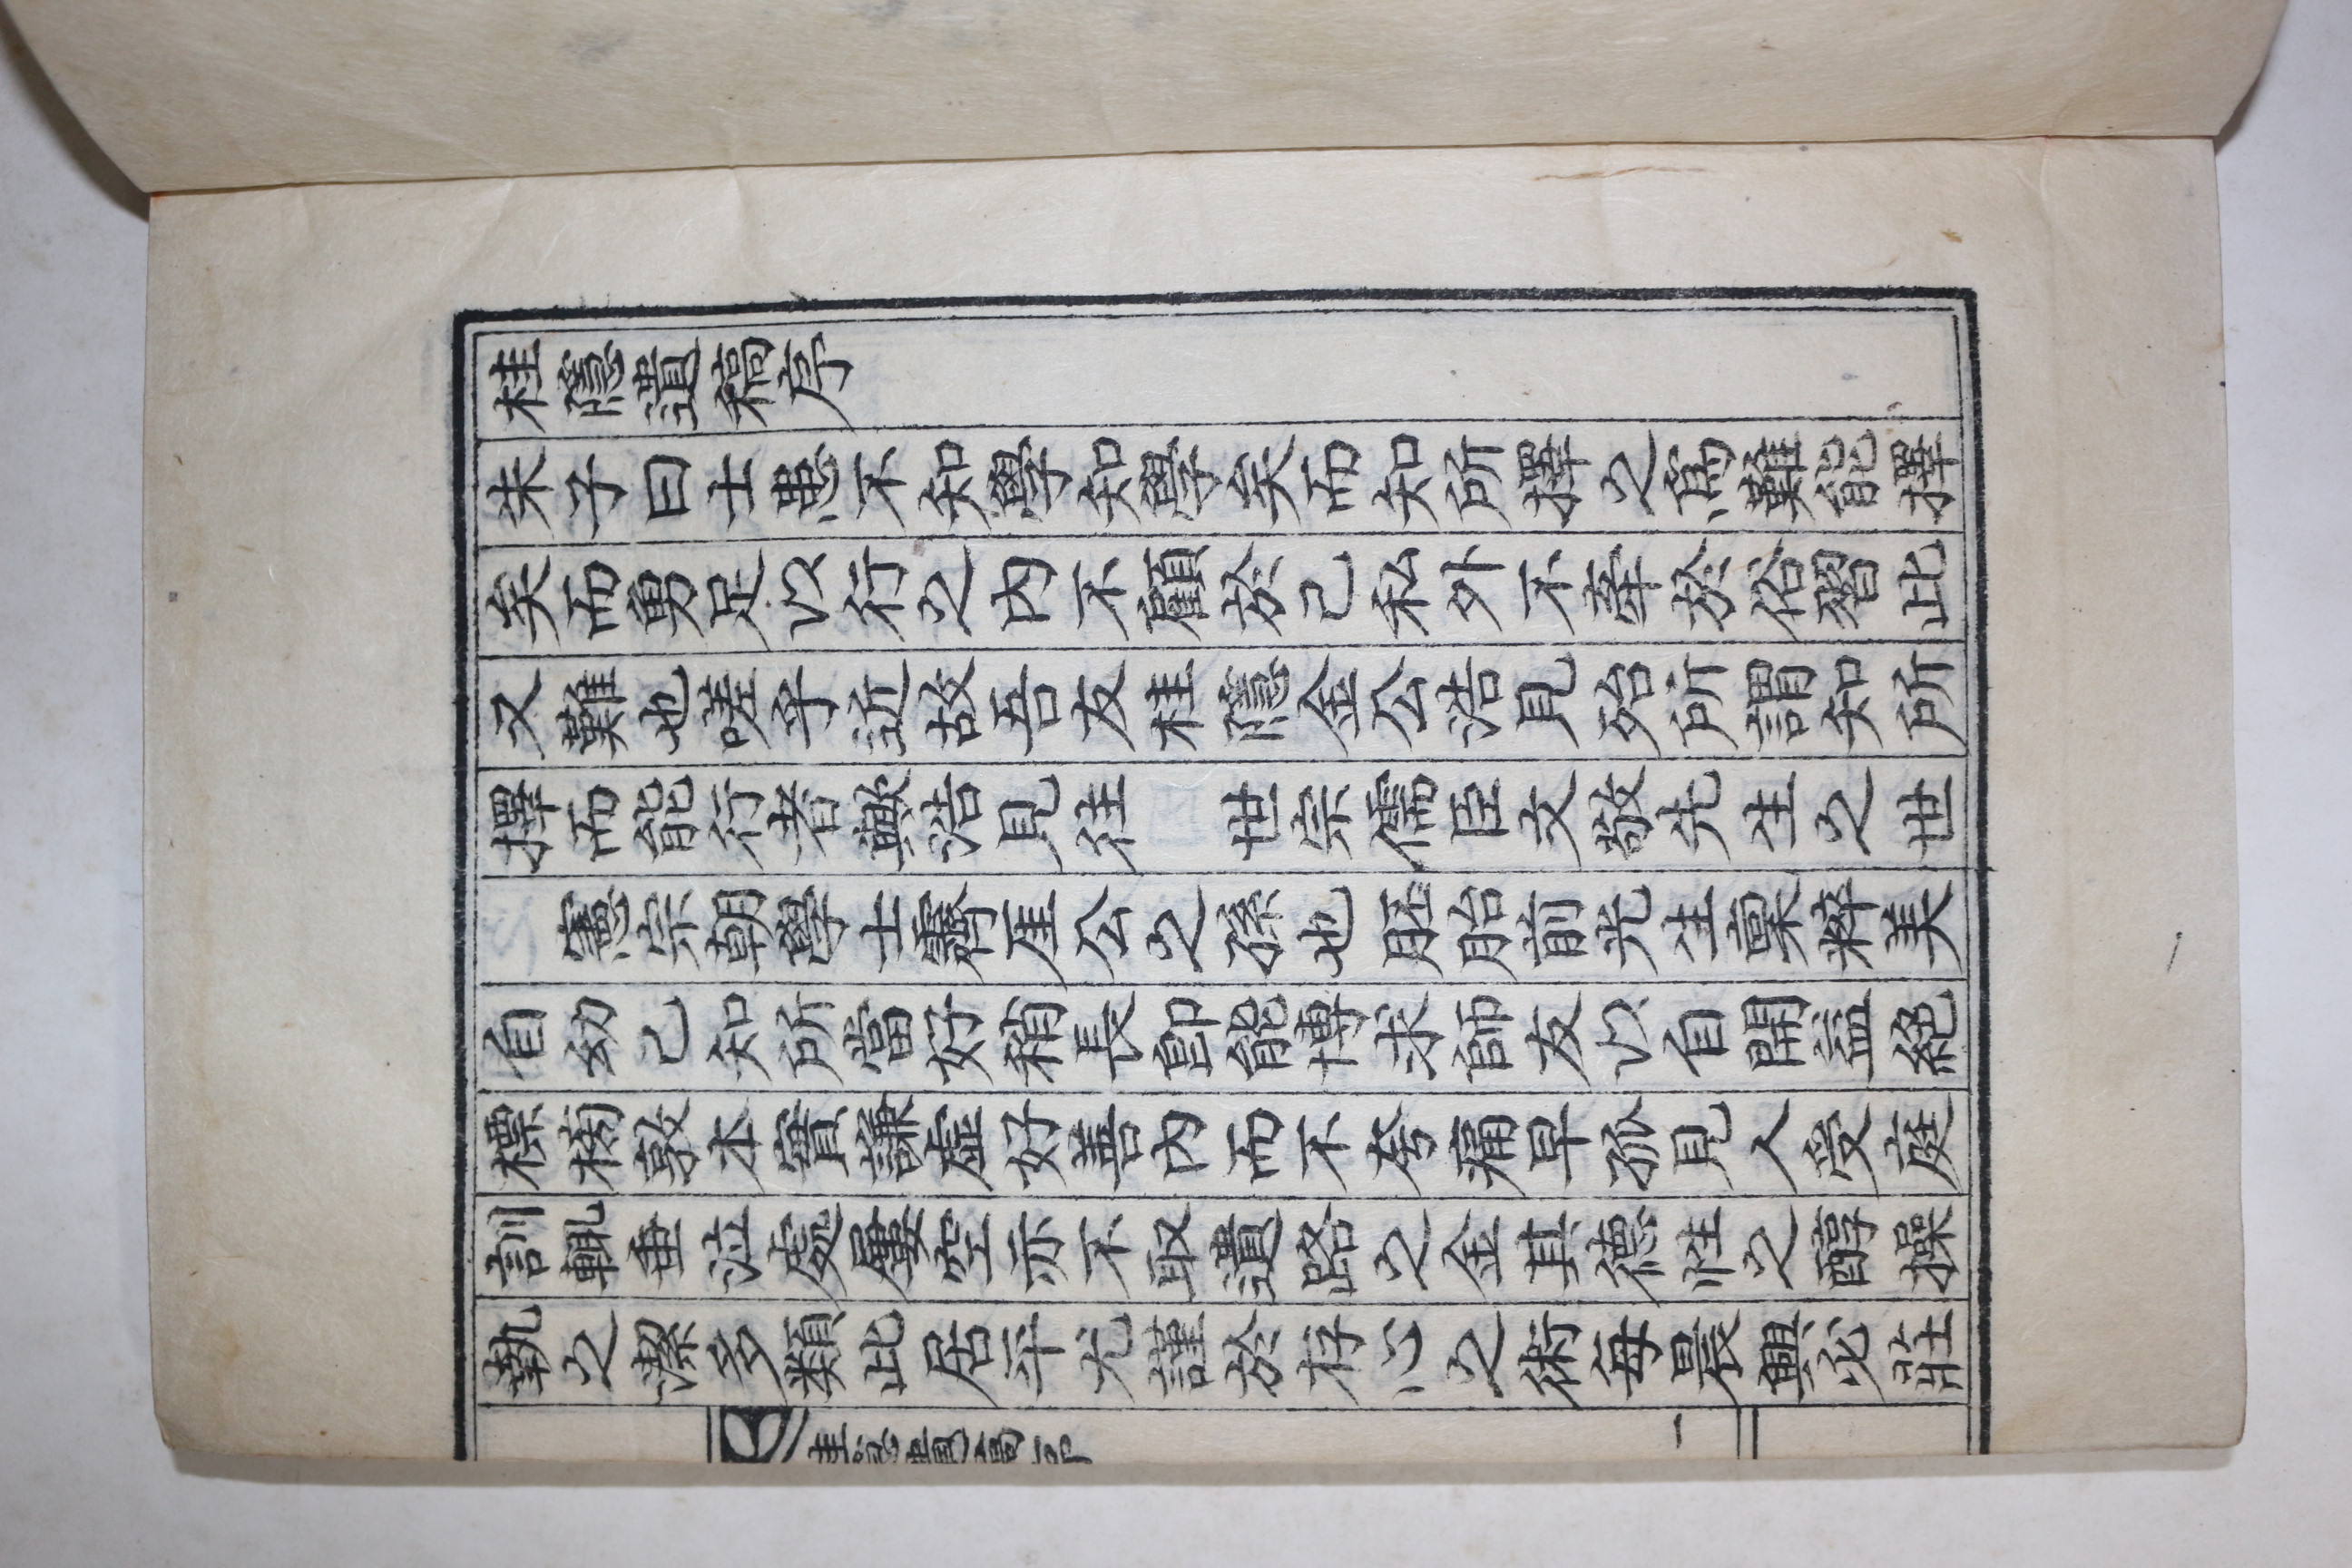 桂隱遺稿序
朱子曰士患不知學知學矣而知所擇之爲難能擇
矣而勇足以行之內不顧於己私外不牽於俗習此
又難也嗟乎近故吾友桂隱金公浩見殆所謂知所
擇而能行者歟浩見往 世宗儒臣文敬先生之世
憲宗朝學士霽厓公之孫也胚胎前光生稟粹美
自幼已知所當好稍長卽能博求師友以自開益絶
標榜敦本實謙虛好善內而不夸痛早孤見人受庭
訓輒垂泣處屢空亦不取遺路之金其德性之醇操
執之潔多類此居平尤謹於存心之術每晨興必莊
桂隱遺稿序
一